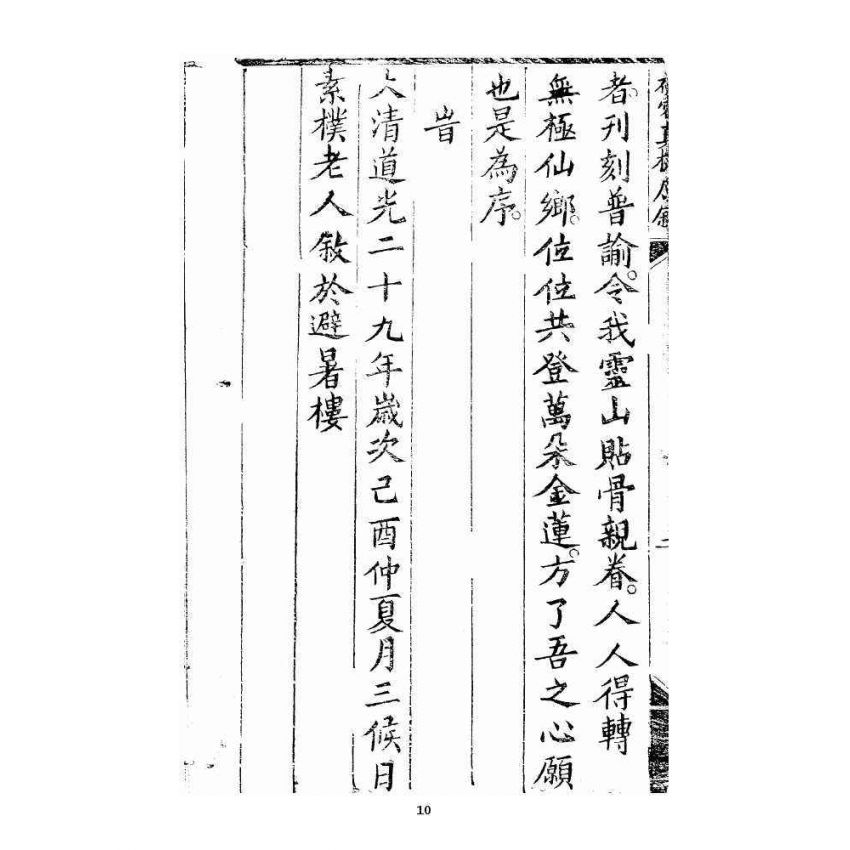 二
者刊刻普諭。令我靈山貼骨親眷。人人得轉
無極仙鄉。位位共登萬朶金蓮。方了吾之心願
也是為序。
旹
大清道光二十九年歲次己酉仲夏月三候日
素樸老人敘於避暑樓
10